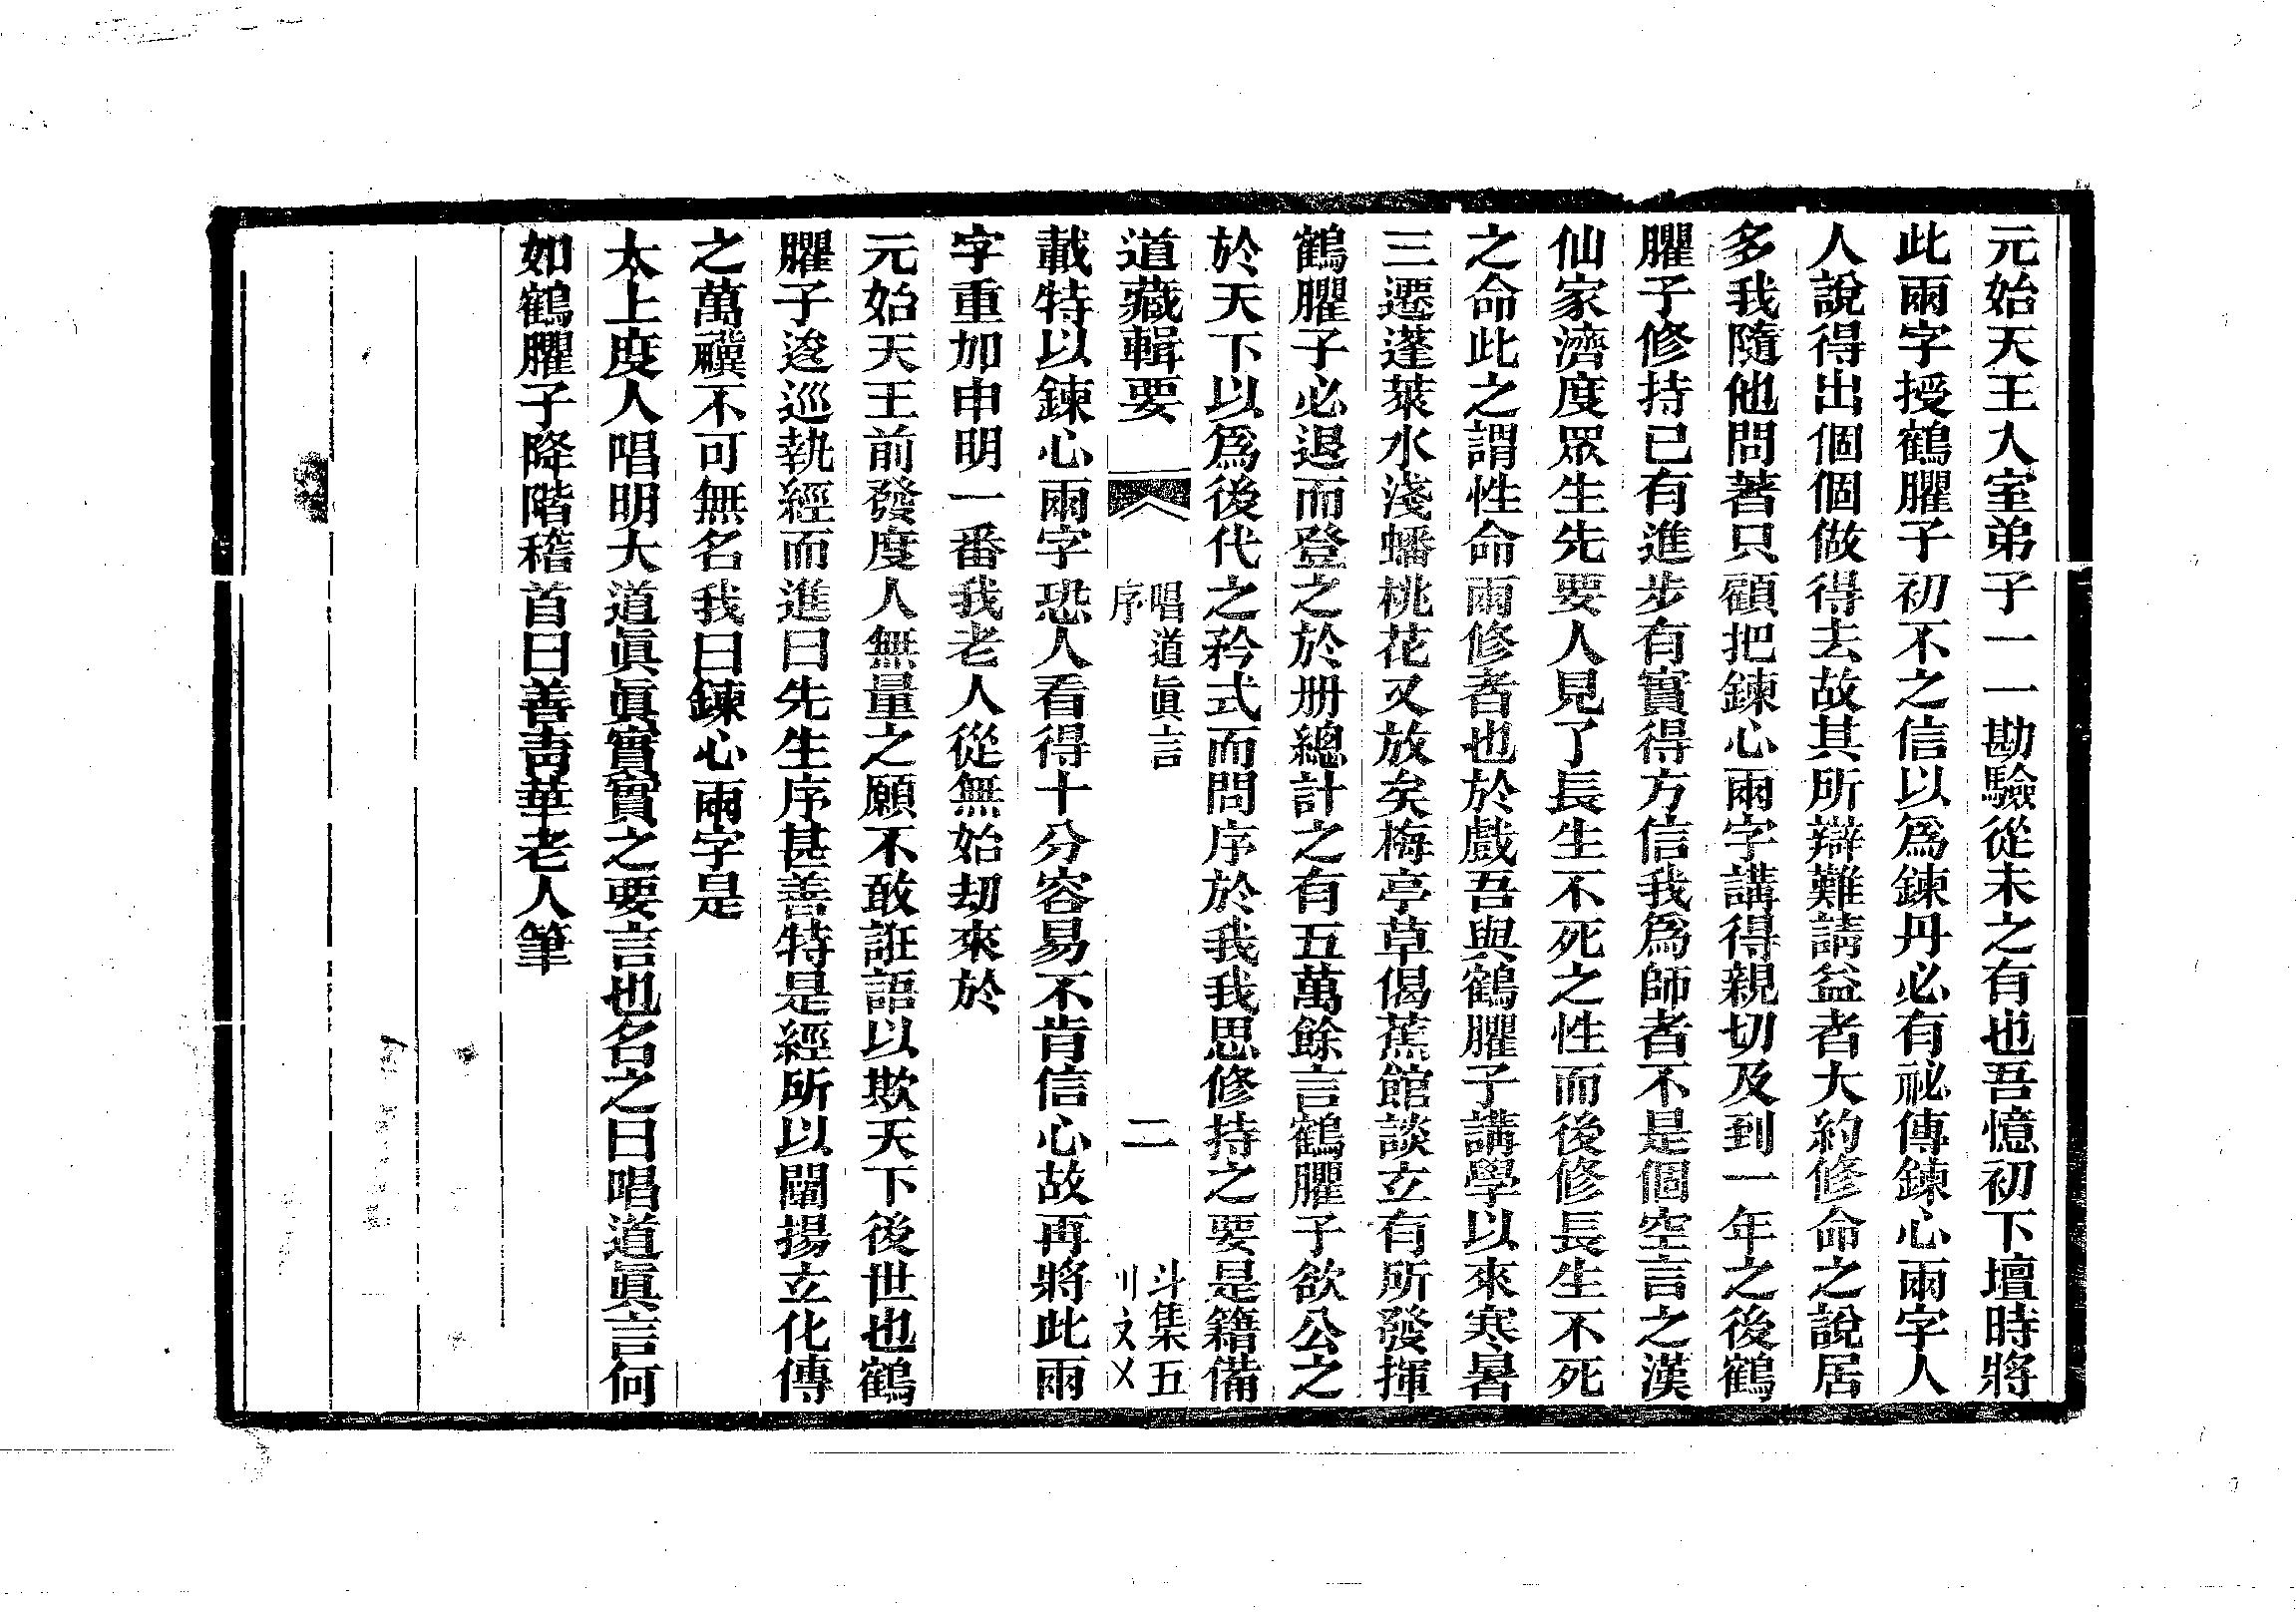 元始天王入室弟子一一勘驗從未之有也吾憶初下壇時將
此兩字授鶴臞子初不之信以爲鍊丹必有祕傳鍊心兩字人
人說得出個個做得去故其所辯難請益者大約修命之說居
多我隨他問著只顧把鍊心兩字講得親切及到一年之後鶴
臞子修持已有進步有實得方信我爲師者不是個空言之漢
仙家濟度眾生先要人見了長生不死之性而後修長生不死
之命此之謂性命雨修者也於戲吾與鶴臞子講學以來寒暑
三遷蓬萊水淺蟠桃花又放矣梅亭草偈蕉館談立有所發揮
鶴臞子必退而登之於册總計之有五萬餘言鶴臞子欲公之
於天下以爲後代之矜式而問序於我我思修持之要是籍備
道藏輯要
唱道眞言
序
二
斗集五
載特以鍊心兩字恐人看得十分容易不肯信心故再將此兩
字重加申明一番我老人從無始劫來於
元始天王前發度人無量之願不敢誑語以欺天下後世也鶴
臞子逡巡執經而進曰先生序甚善特是經所以闡揚立化傳
之萬禩不可無名我曰鍊心兩字是
太上度人唱明大道眞眞實實之要言也名之曰唱道眞言何
如鶴臞子降階稽首曰善靑華老人筆